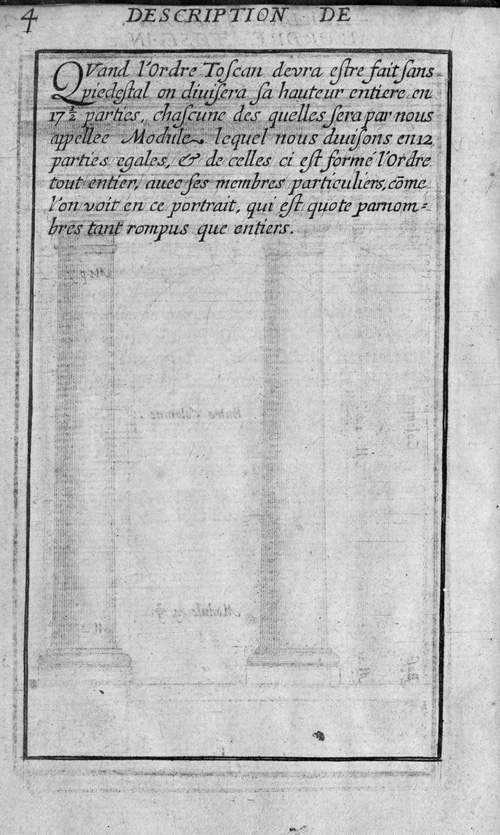 4 DESCRIPTION DE
QVand l'Ordre Toscan devra estre fait sans
piedestal on diuisera sa hauteur entiere en
17 ½ parties, chascune des quelles sera par nous
appellee Module lequel nous diuisons en 12
parties egales, & de celles ci est formé l'Ordre
tout entier, auec ses membres particuliers, cõme
l'on voit en ce portrait, qui est quote par nom=
bres tant rompus que entiers.